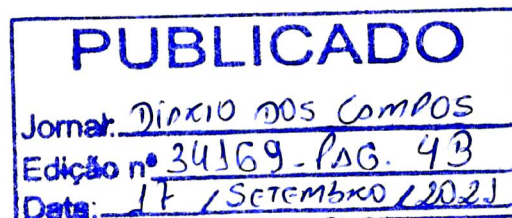 PUBLICADO
Jornal: DIÁRIO DOS CAMPOS
Edição nº 34169 - PAG. 4B
Data: 17 / SETEMBRO / 2021